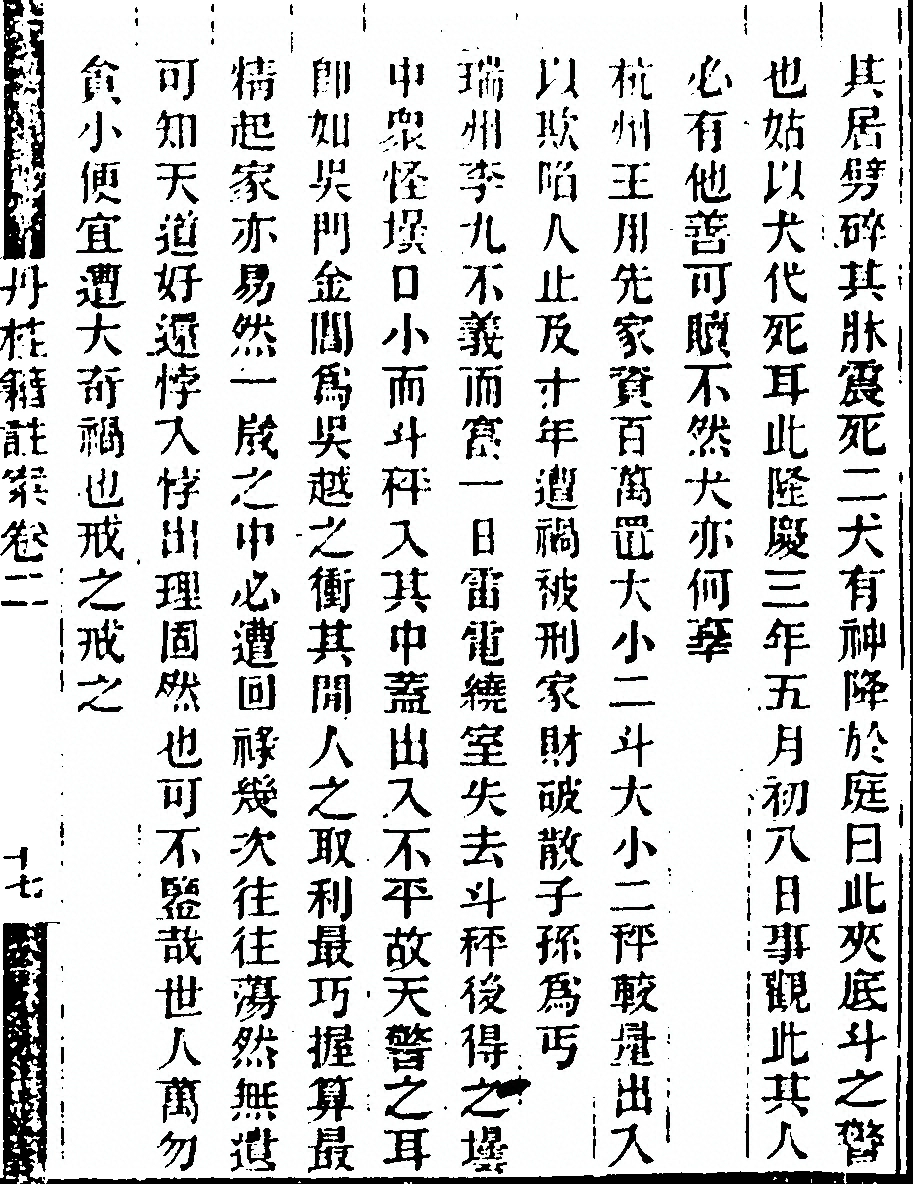 其居劈碎其牀震死二犬有神降於庭曰此夾底斗之警
也姑以犬代死耳此隆慶三年五月初八日事觀此其人
必有他善可贖不然犬亦何辜
杭州王用先家資百萬置大小二斗大小二秤較量出入
以欺陷人止及十年遭禍被刑家財破散子孫為丐
瑞州李九不義而富一日雷電繞室失去斗秤後得之壜
中眾怪壜口小而斗秤入其中蓋出入不平故天警之耳
卽如吳門金閶為吳越之衝其閒人之取利最巧握算最
精起家亦易然一歲之中必遭回祿幾次往往蕩然無遺
可知天道好還悖入悖出理固然也可不鑒哉世人萬勿
貪小便宜遭大奇禍也戒之戒之
丹桂籍註案卷二
十七